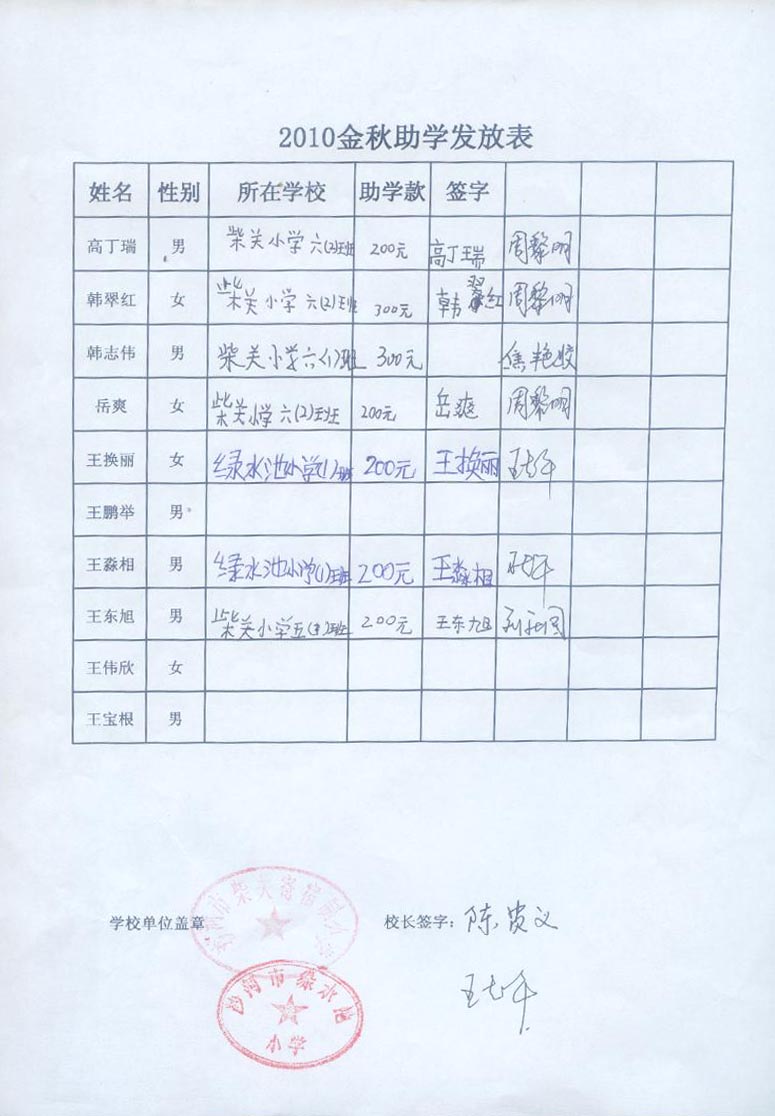 2010金秋助学发放表
姓名 性别 所在学校 助学款 签字
高丁瑞 男 柴关小学六(2)班 200元 高丁瑞 周黎明
韩翠红 女 柴关小学六(2)班 300元 韩翠红 周黎明
韩志伟 男 柴关小学六(1)班 300元 焦艳姣
岳爽 女 柴关小学六(2)班 200元 岳爽 周黎明
王换丽 女 绿水池小学(1)班 200元 王换丽
王鹏举 男
王淼相 男 绿水池小学(1)班 200元 王淼相
王东旭 男 柴关小学五班 200元 王东旭
王伟欣 女
王宝根 男
沙河市柴关寄宿制小学
学校单位盖章 校长签字：陈贵文
沙河市绿水池
小学